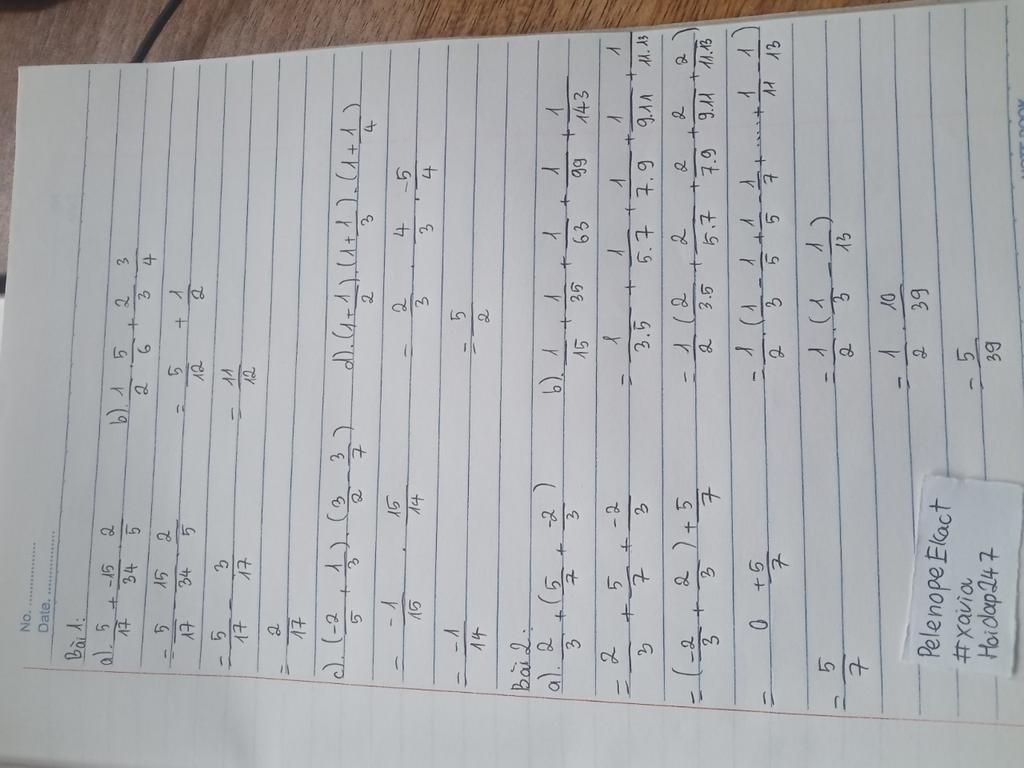 No. ....................
Date. ....................
Bài 1:
a). 5/17 + -15/34 . 2/5
= 5/17 - 15/34 . 2/5
= 5/17 - 3/17
= 2/17
b) 1/2 . 5/6 + 2/3 . 3/4
= 5/12 + 1/2
= 11/12
c) (-2/5 + 1/3) . (3/2 - 3/7)
= -1/15 . 15/14
= -1/14
d). (1+1/2).(1+1/3).(1+1/4)
= 2/3 . 4/3 . -5/4
= 5/2
Bài 2:
a) 2/3 + (5/7 + -2/3)
= 2/3 + 5/7 + -2/3
= (-2/3 + 2/3) + 5/7
= 0 + 5/7
= 5/7
b). 1/15 + 1/35 + 1/63 + 1/99 + 1/143
= 1/3.5 + 1/5.7 + 1/7.9 + 1/9.11 + 1/11.13
= 1/2 (2/3.5 + 2/5.7 + 2/7.9 + 2/9.11 + 2/11.13)
= 1/2 . (1/3 - 1/5 + 1/5 - 1/7 + .... + 1/11 - 1/13)
= 1/2 . (1/3 - 1/13)
= 1/2 . 10/39
= 5/39
PelenopeEKact
#xaivia
Hoidap247